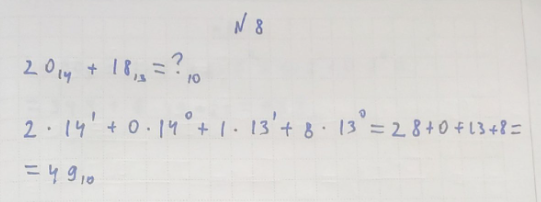 № 8
20₁₄ + 18₁₃ = ?₁₀
2 · 14¹ + 0 · 14⁰ + 1 · 13¹ + 8 · 13⁰ = 28+0+13+8=
= 49₁₀